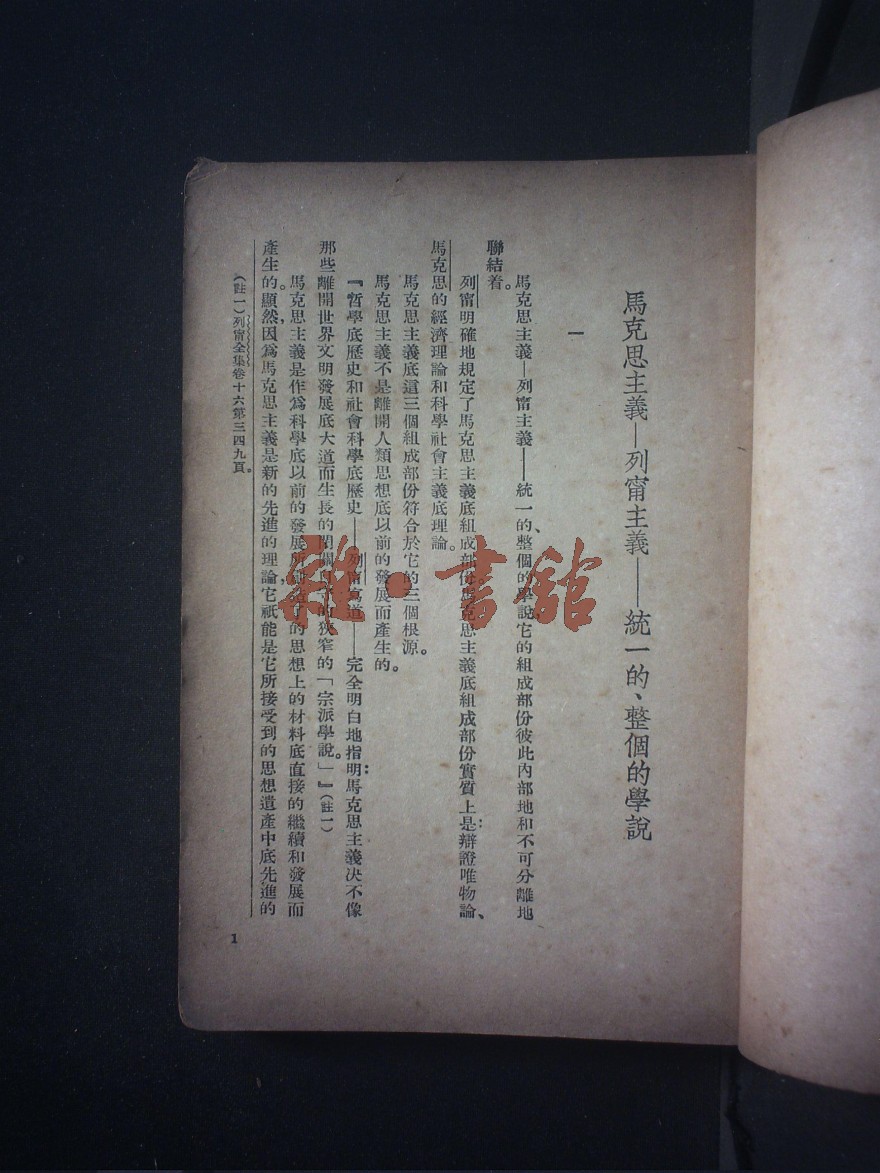 馬克思主義—列甯主義——統一的、整個的學說
一
馬克思主義—列甯主義——統一的、整個的學說,它的組成部份彼此內部地和不可分離地
聯結着。
列甯明確地規定了馬克思主義底組成部份。馬克思主義底組成部份實質上是:辯證唯物論、
馬克思的經濟理論和科學社會主義底理論。
馬克思主義底這三個組成部份符合於它的三個根源。
馬克思主義不是離開人類思想底以前的發展而產生的。
『哲學底歷史和社會科學底歷史——列甯寫道——完全明白地指明:馬克思主義決不像
那些離開世界文明發展底大道而生長的閉關的狹窄的「宗派學說。」』(註一)
馬克思主義是作為科學底以前的發展所的思想上的材料底直接的繼續和發展而
產生的。顯然,因為馬克思主義是新的先進的理論,它祇能是它所接受到的思想遺產中底先進的
(註一)列甯全集卷十六第三四九頁。
1
雜·書舘